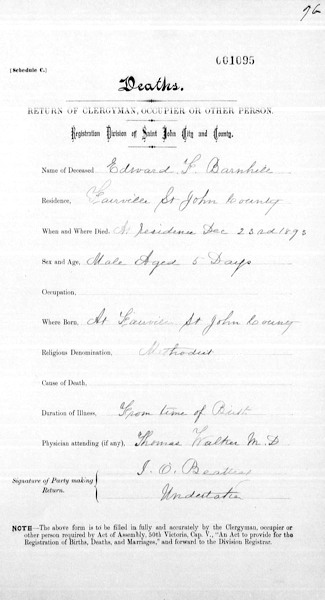 76
001095
(Schedule C.)
Deaths.
RETURN OF CLERGYMAN, OCCUPIER OR OTHER PERSON.
Registration Division of Saint John City and County.
Name of Deceased Edward F Barnhill
Residence, Fairville St John County
When and Where Died, At residence Dec 23rd 1893
Sex and Age, Male Aged 5 Days
Occupation,
Where Born, At Fairville St John County
Religious Denomination, Methodist
Cause of Death,
Duration of Illness, From time of Birth
Physician attending (if any), Thomas Walker M.D
Signature of Party making Return. I. O. Beatteay
Undertaker
NOTE—The above form is to be filled in fully and accurately by the Clergyman, occupier or
other person required by Act of Assembly, 50th Victoria, Cap. V., "An Act to provide for the
Registration of Births, Deaths, and Marriages," and forward to the Division Registrar.